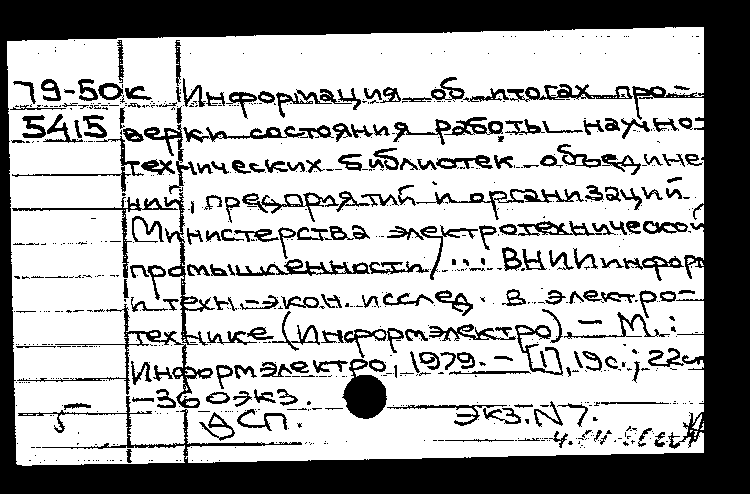 79-50к Информация об итогах про-
5415 верки состояния работы научно-
технических библиотек объедине-
ний, предприятий и организаций
Министерства электротехнической
промышленности/... ВНИИинформ
и техн.-экон. исслед. в электро-
технике (Информэлектро). – М.:
Информэлектро, 1979. – [1], 19с.; 22см
–360экз.
5 ДСП. Экз.N7.